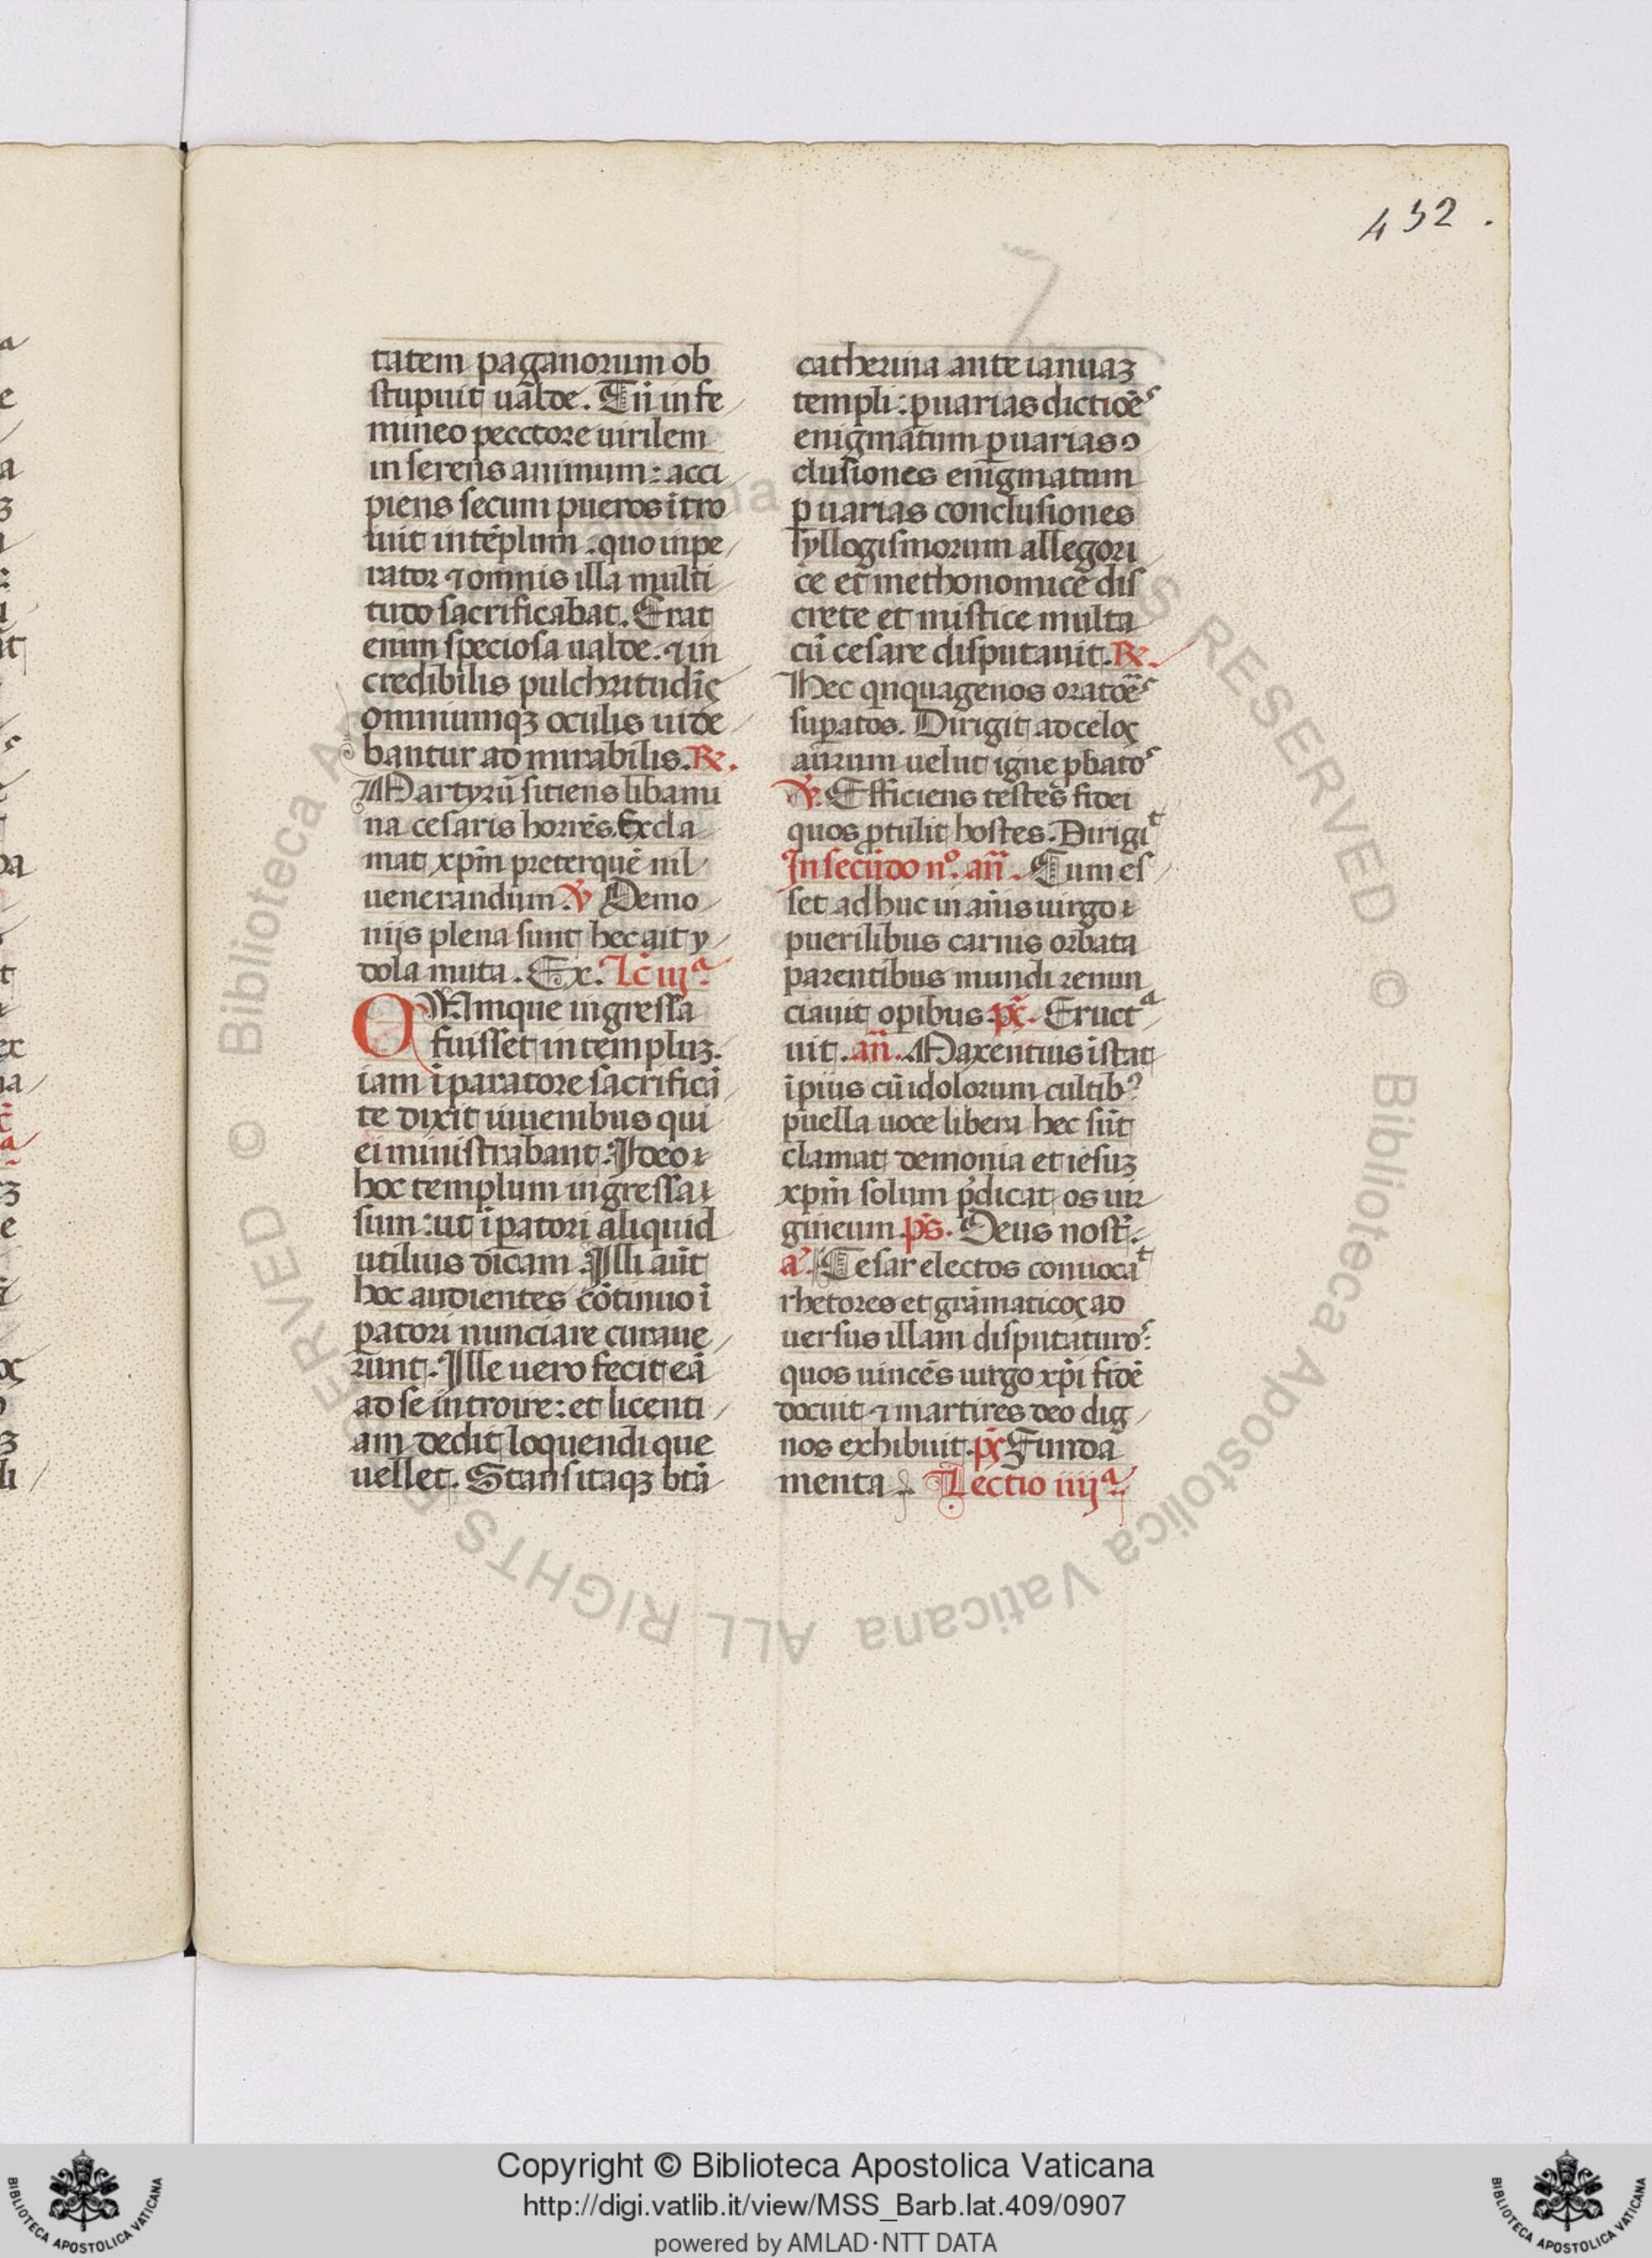 432.
tatem paganorum ob
stupuit ualde. Tn̄ in fe
mineo pecctore uirilem
in serens animum: acci
piens secum pueros ītro
iuit in tēplum. quo inpe
rator ⁊ omnis illa multi
tudo sacrificabat. Erat
enim speciosa ualde. ⁊ in
credibilis pulchritudīs
omniumqꝫ oculis uide
bantur ad mirabilis. ℞.
Martyrū sitiens libanu
na cesaris horrēs. Excla
mat xp̄m preterquē nil
uenerandum. ℣ Demo
nijs plena sunt hec ait y
dola muta. Ex. Lc̄ iijᵃ.
QUAmque ingressa
fuisset in templuꝫ.
iam īparatore sacrificā
te dixit iuuenibus qui
ei ministrabant: Ideo ı
hoc templum ingressa ı
sum: ut īpatori aliquid
utilius dicam. Illi aūt
hoc audientes cōtinuo ī
patori nunciare curaue
runt. Ille uero fecit eā
ad se introire: et licenti
am dedit loquendi que
uellet. Stans itaqꝫ btā
catherina ante ianuaꝫ
templi: ꝑ uarias dictiōēˢ
enigmatum ꝑ uarias ɔ
clusiones enigmatum
ꝑ uarias conclusiones
syllogismorum allegori
ce et methonomice dis
crete et mistice multa
cū cesare disputauit. ℞.
Hec qnquagenos oratōēˢ
suꝑatos. Dirigit ad celos
aurum uelut igne ꝓbatoˢ
℣. Efficiens testes fidei
quos ꝓtulit hostes. Dirigiᵗ
In secūdo n°. an̄. Cum es
set ad huc in ānis uirgo ı
puerilibus carnis orbata
parentibus mundi renun
ciauit opibus. ps̄. Eructᵃ
uit. an̄. Maxentius īstat
īpius cū idolorum cultib⁹
puella uoce libera hec sūt
clamat demonia et iesuꝫ
xp̄m solum p̄dicat os uir
gineum. ps̄. Deus nost̄.
a͛. Cesar electos conuocaᵗ
rhetores et grāmaticos ad
uersus illam disputaturoˢ:
quos uincēs uirgo xp̄i fidē
docuit ⁊ martires deo dig
nos exhibuit. ps̄ Funda
menta. Lectio iiijᵃ.
© Biblioteca Apostolica Vaticana ALL RIGHTS RESERVED
Copyright © Biblioteca Apostolica Vaticana
http://digi.vatlib.it/view/MSS_Barb.lat.409/0907
powered by AMLAD·NTT DATA
BIBLIOTECA APOSTOLICA VATICANA
BIBLIOTECA APOSTOLICA VATICANA